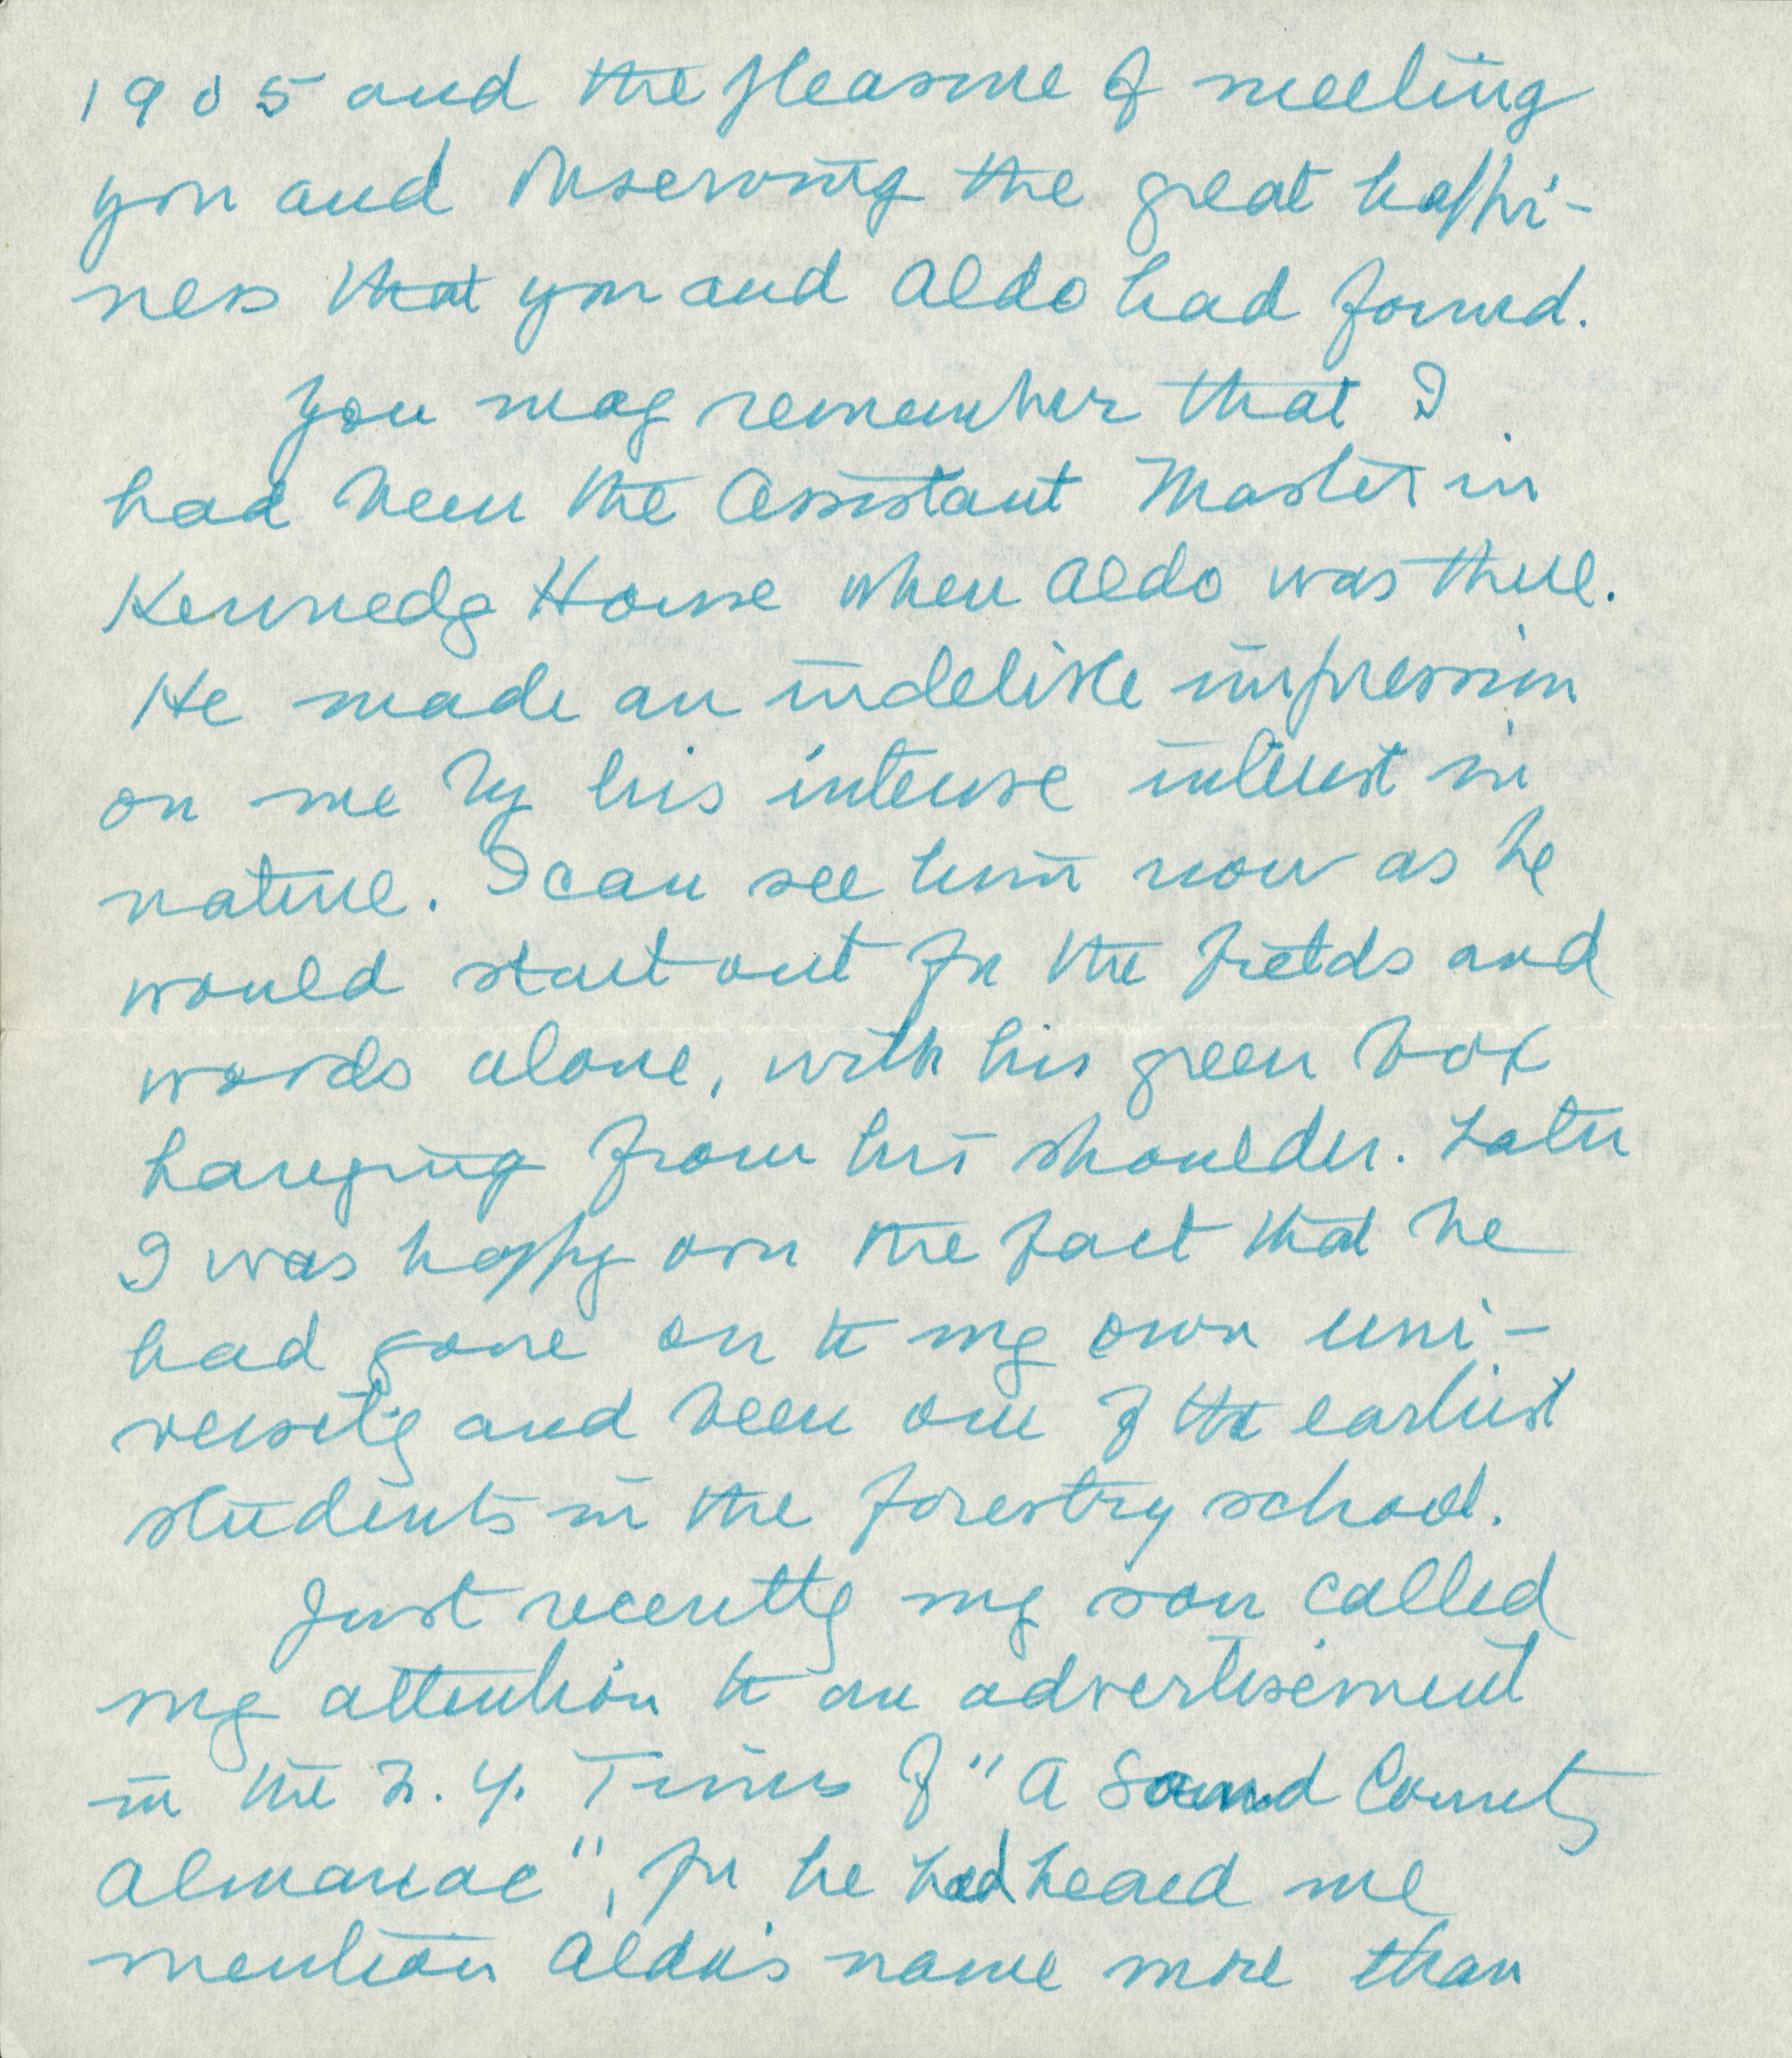 1905 and the pleasure of meeting
you and observing the great happi-
ness that you and Aldo had found.
You may remember that I
had been the Assistant Master in
Kennedy House when Aldo was there.
He made an indelible impression
on me by his intense interest in
nature. I can see him now as he
would start out for the fields and
woods alone, with his green box
hanging from his shoulder. Later
I was happy over the fact that he
had gone on to my own uni-
versity and been one of the earliest
students in the forestry school.
Just recently my son called
my attention to an advertisement
in the N.Y. Times of "A Sand County
Almanac", for he had heard me
mention Aldo's name more than